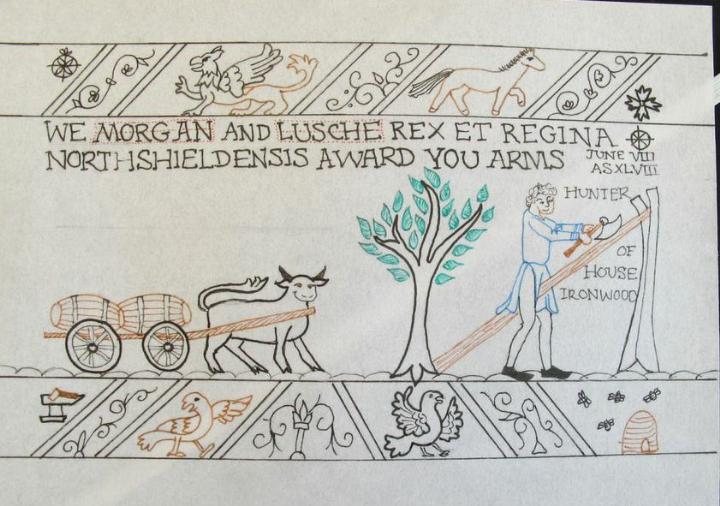 WE MORGAN AND LUSCHE REX ET REGINA
NORTHSHIELDENSIS AWARD YOU ARMS
JUNE VIII
AS XLVIII
HUNTER
OF
HOUSE
IRONWOOD